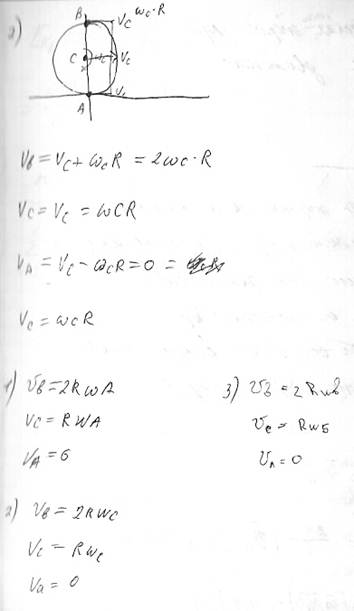 2)
B
V_C
ω_C·R
C
V_C
V_C
A
V_C
V_B = V_C + ω_C R = 2ωC·R
V_C = V_C = ωCR
V_A = V_C − ω_C R = 0 =
V_C = ωCR
1) V_B = 2RωA
V_C = RWA
V_A = 6
3) V_B = 2Rωb
V_C = Rω5
V_A = 0
2) V_B = 2Rω_C
V_C = Rω_C
V_a = 0